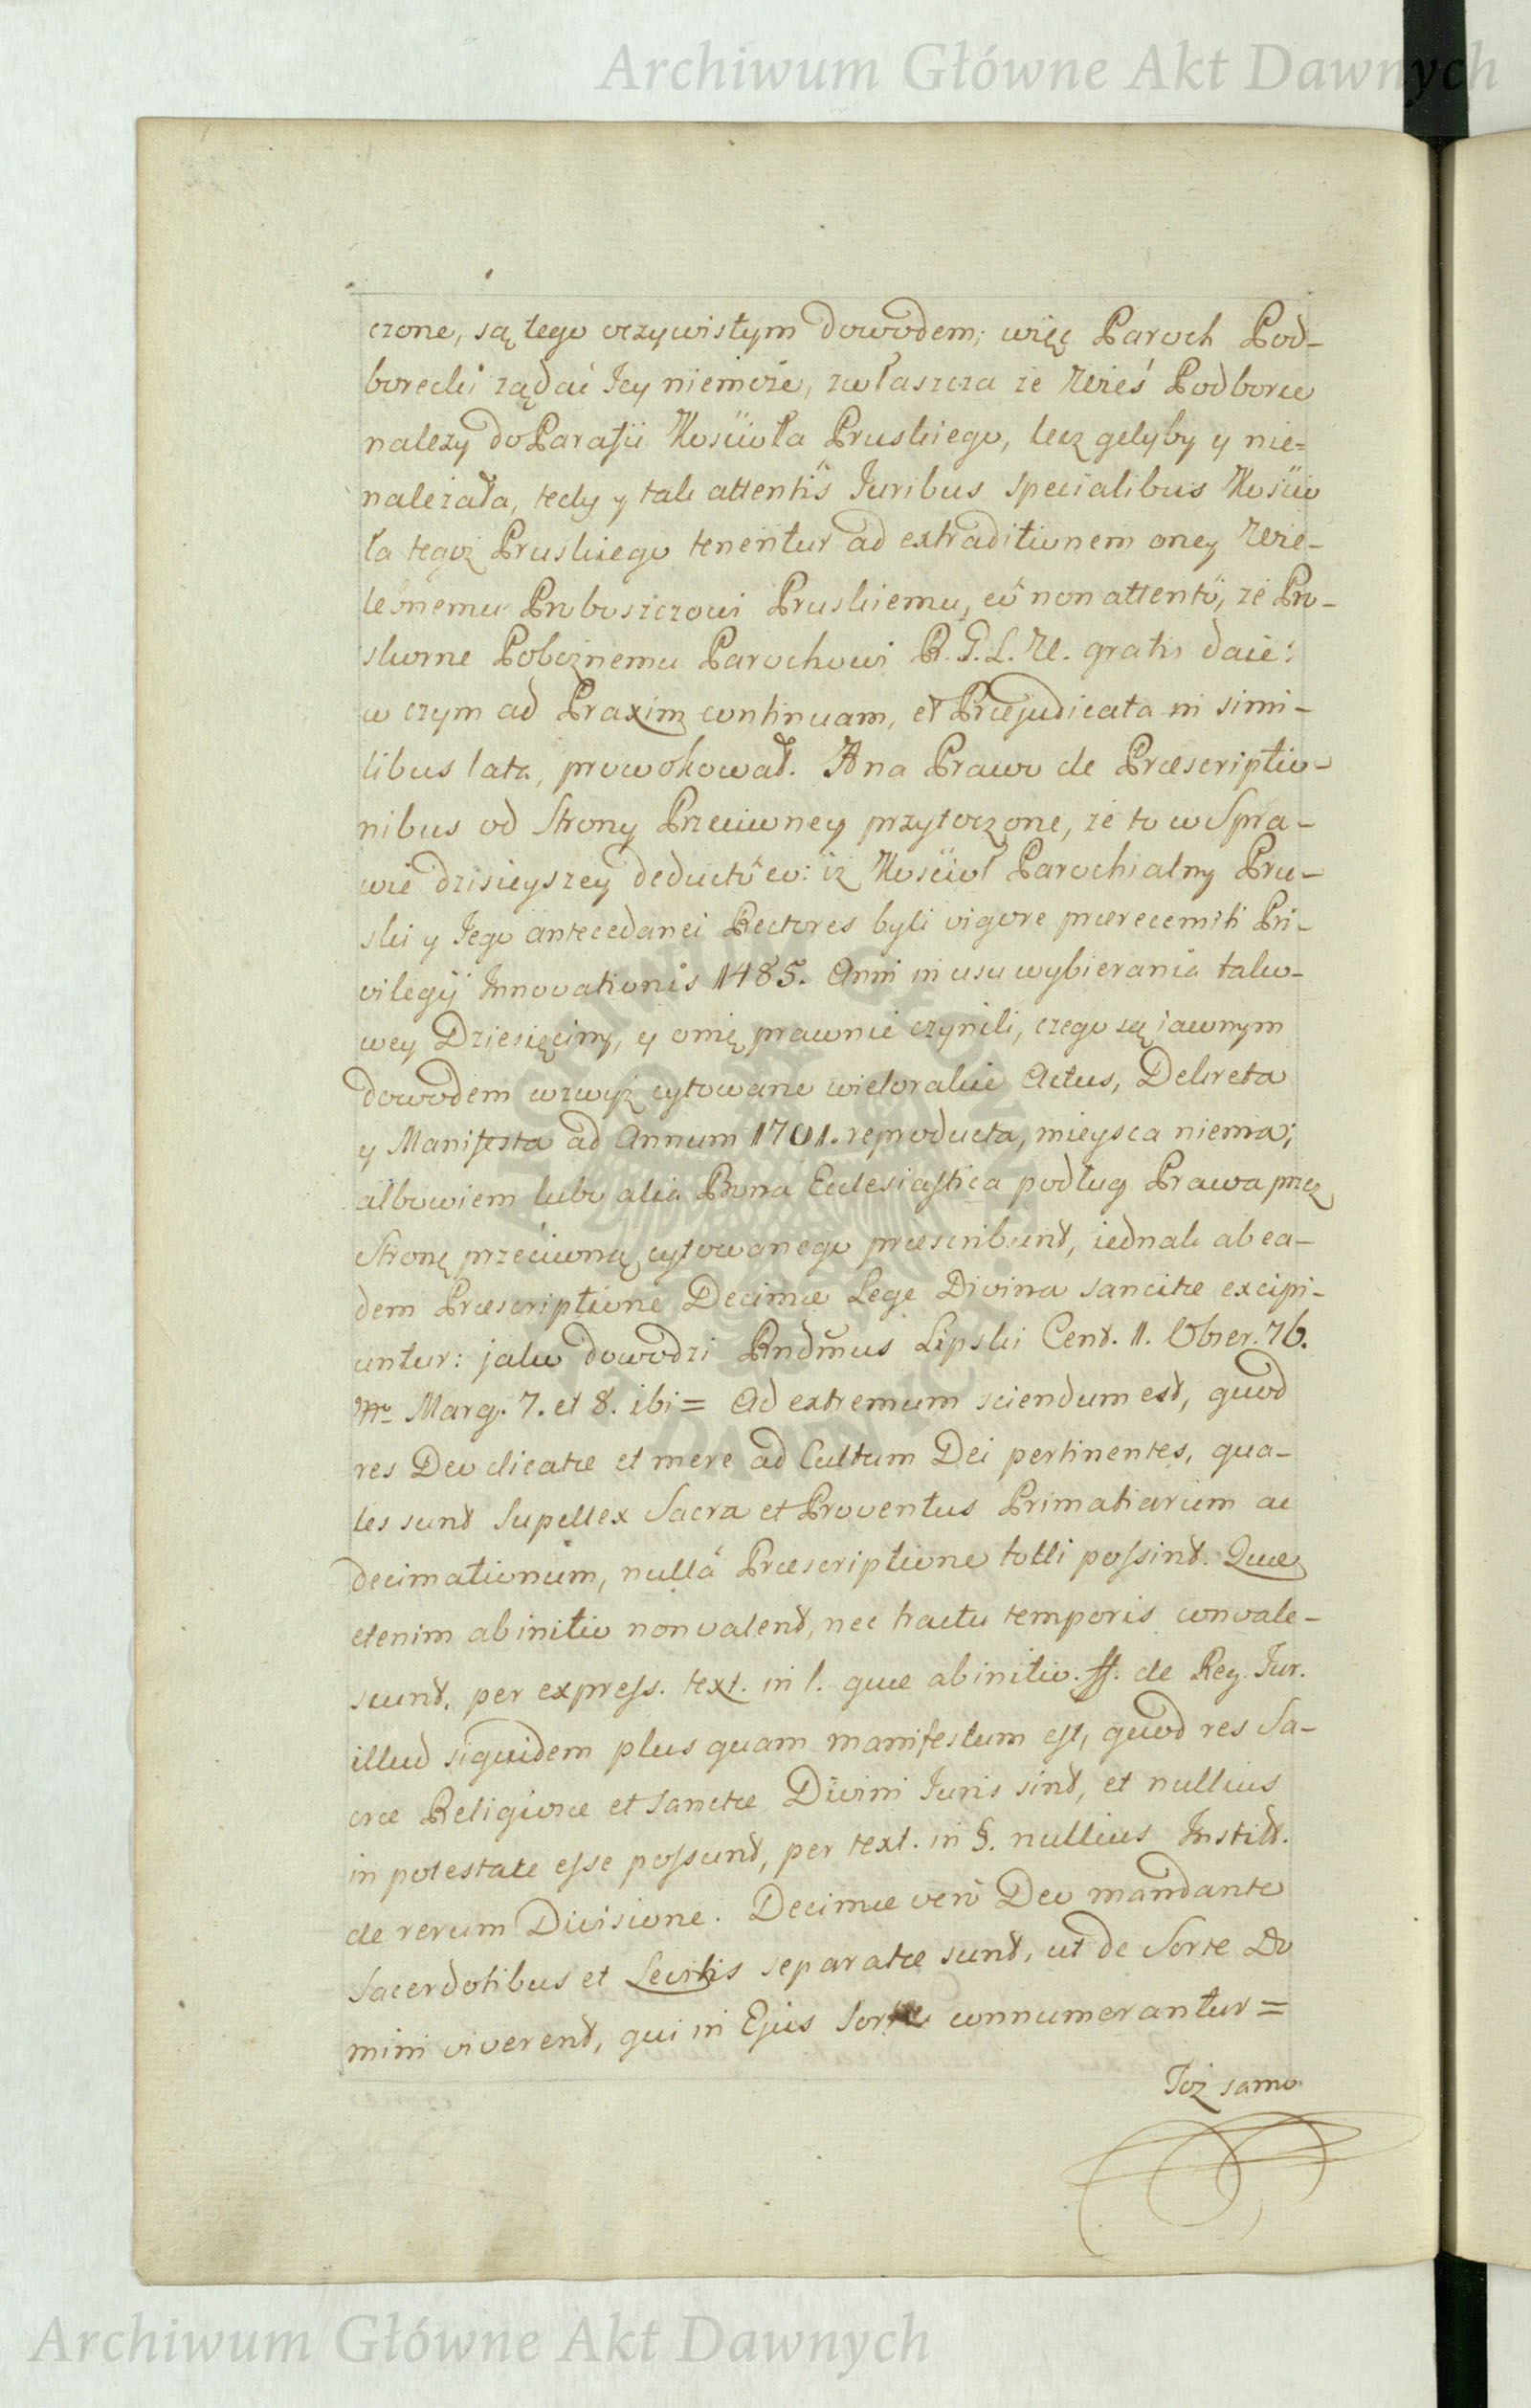 Archiwum Główne Akt Dawnych
czone, są tego oczywistym dowodem; więc Paroch Pod-
borecki żądać Jey niemoże, zwłaszcza że Wieś Podborce
należy do Parafii Kościoła Pruskiego, lecz gdyby y nie=
należała, tedy y tak attentis Juribus specialibus Kościo
ła tegoż Pruskiego tenentur ad extraditionem oney Wie-
lebnemu Proboszczowi Pruskiemu, eo non attento, że Pro-
skurne Pobożnemu Parochowi R. G. L. U. gratis daie:
w czym ad Praxim continuam, et Præjudicata in simi-
libus lata, prowokował. A na Prawo de Præscriptio-
nibus od Strony Przeciwney przytoczone, że to w Spra-
wie dzisieyszey deducto eo: iż Kościoł Parochialny Pru-
ski y Jego antecedanei Rectores byli vigore prærecensiti Pri-
vilegij Innovationis 1485. Anni in usu wybierania tako-
wey Dziesięciny, y onię prawnie czynili, czego są iawnym
dowodem wzwyż cytowane wielorakie Actus, Dekreta
y Manifesta ad Annum 1701. reproducta, mieysca niema;
albowiem lubo alia Bona Ecclesiastica podług Prawa przez
Stronę przeciwną cytowanego præscribunt, iednak ab ea-
dem Præscriptione Decimæ Lege Divina sancitæ excipi-
untur: jako dowodzi Rndmus Lipski Cent. 1. Obser. 76.
Nro Marg. 7. et 8. ibi = Ad extremum sciendum est, quod
res Deo dicatæ et mere ad Cultum Dei pertinentes, qua-
les sunt Supellex Sacra et Proventus Primatiarum ac
decimationum, nullâ Præscriptione tolli possint. Quæ
etenim ab initio non valent, nec tractu temporis convale-
scunt, per express. text. in l. quæ ab initio. ff. de Reg. Jur.
illud siquidem plus quam manifestum est, quod res Sa-
cræ Religiosæ et Sanctæ Divini Juris sint, et nullius
in potestate esse possunt, per text. in §. nullius Instit.
de rerum Divisione. Decimæ vero Deo mandante
Sacerdotibus et Levitis separatæ sunt, ut de Sorte Do
mini viverent, qui in Ejus Sorte connumerantur =
Toż samo
Archiwum Główne Akt Dawnych